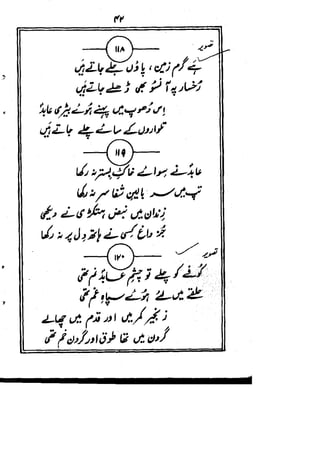 ۴۲
تصویر
۱۱۸
ہے گرم زمین، پاؤں جلے جاتے ہیں
رخسار پہ آنسو بھی ڈھلے جاتے ہیں
اس دھوپ میں پہنے ہوئے بیڑی عابدؑ
تلواروں کے سائے چلے جاتے ہیں
۱۱۹
عابدؑ نے سوائے خاک بستر نہ رکھا
تپ میں سر بالین شفا سر نہ رکھا
زندان میں نبض ہتکڑی نے دیکھی
جز داغ کسی نے ہاتھ دل پر نہ رکھا
تصویر
۱۲۰
کوفے کو چلے تو چشم عابدؑ نم تھی
حلقے میں لئے ہوئے سپاہ غم تھی
زنجیر کمر میں اور قدم میں چھالے
گردن میں تھا طوق اور گردن خم تھی